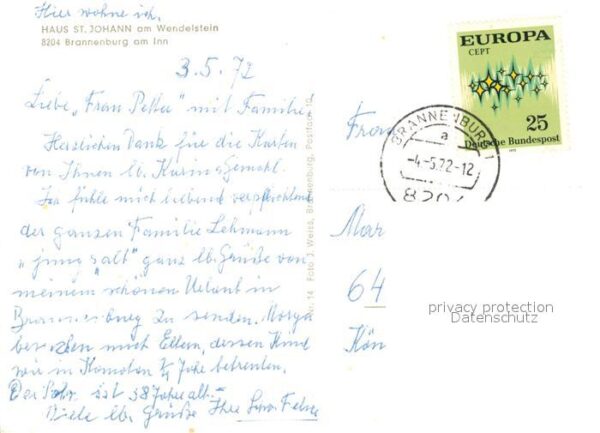 Hier wohne ich.
HAUS ST. JOHANN am Wendelstein
8204 Brannenburg am Inn
3.5.72
Liebe "Frau Petter" mit Familie,
Herzlichen Dank für die Karten
von Ihnen lb.
fühle mich
der ganzen Familie Lehmann
"jung & alt" ganz lb. Grüße von
meinem schönen Urlaub in
Brannenburg zu senden. Morgen
mich Eltern, dessen Kind
wir in Kamaten 1/4 Jahr betreuten.
Der Sohn ist 38 Jahre alt.
Viele lb. Grüße Ihre
Nr. 14 Foto J. Weiss, Brannenburg, Postfach 10
EUROPA
CEPT
25
Deutsche Bundespost
1972
BRANNENBURG 1
a
-4-5.72-12
8204
Frau
Mar
64
Kön
privacy protection
Datenschutz